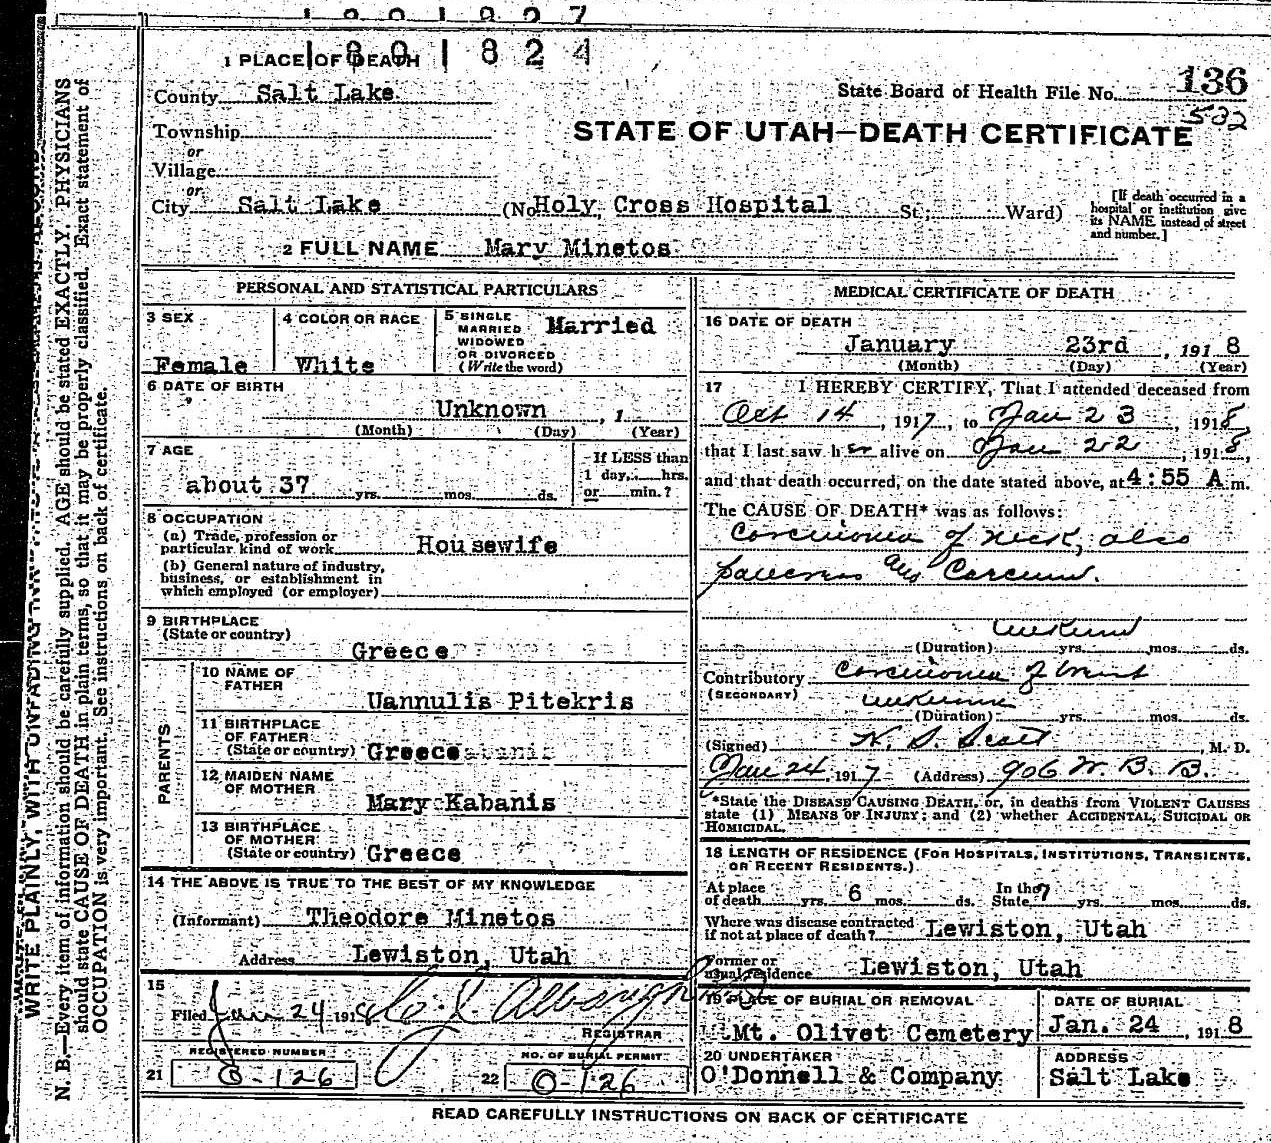 1 PLACE OF DEATH
1801824
County Salt Lake
State Board of Health File No. 136
532
Township
or
STATE OF UTAH—DEATH CERTIFICATE
Village
or
City Salt Lake (No Holy Cross Hospital St.; Ward)
[If death occurred in a hospital or institution give its NAME instead of street and number.]
2 FULL NAME Mary Minetos
PERSONAL AND STATISTICAL PARTICULARS
3 SEX Female
4 COLOR OR RACE White
5 SINGLE MARRIED WIDOWED OR DIVORCED (Write the word) Married
6 DATE OF BIRTH
Unknown , 1
(Month) (Day) (Year)
7 AGE
about 37 yrs. mos. ds.
If LESS than 1 day, hrs. or min.?
8 OCCUPATION
(a) Trade, profession or
particular kind of work Housewife
(b) General nature of industry,
business, or establishment in
which employed (or employer)
9 BIRTHPLACE
(State or country)
Greece
PARENTS
10 NAME OF
FATHER
Uannulis Pitekris
11 BIRTHPLACE
OF FATHER
(State or country) Greece
12 MAIDEN NAME
OF MOTHER
Mary Kabanis
13 BIRTHPLACE
OF MOTHER
(State or country) Greece
14 THE ABOVE IS TRUE TO THE BEST OF MY KNOWLEDGE
(Informant) Theodore Minetos
Address Lewiston, Utah
15
Filed Jan 24 1918
REGISTRAR
REGISTERED NUMBER
21 O-126
NO. OF BURIAL PERMIT
22 O-126
MEDICAL CERTIFICATE OF DEATH
16 DATE OF DEATH
January 23rd , 1918
(Month) (Day) (Year)
17 I HEREBY CERTIFY, That I attended deceased from
Oct 14 , 1917, to Jan 23 , 1918,
that I last saw her alive on Jan 22 , 1918,
and that death occurred, on the date stated above, at 4:55 A m.
The CAUSE OF DEATH* was as follows:
Carcinoma of neck, also
pancreas
(Duration) yrs. mos. ds.
Contributory Carcinoma of
(SECONDARY)
(Duration) yrs. mos. ds.
(Signed) Scott , M. D.
Jan 24, 1917 (Address) 906 W. B. B.
*State the DISEASE CAUSING DEATH, or, in deaths from VIOLENT CAUSES
state (1) MEANS OF INJURY; and (2) whether ACCIDENTAL, SUICIDAL OR
HOMICIDAL.
18 LENGTH OF RESIDENCE (FOR HOSPITALS, INSTITUTIONS, TRANSIENTS,
OR RECENT RESIDENTS.)
At place
of death yrs. 6 mos. ds.
In the
State 7 yrs. mos. ds.
Where was disease contracted
if not at place of death? Lewiston, Utah
Former or
usual residence Lewiston, Utah
19 PLACE OF BURIAL OR REMOVAL
Mt. Olivet Cemetery
DATE OF BURIAL
Jan. 24 , 1918
20 UNDERTAKER
O'Donnell & Company
ADDRESS
Salt Lake
READ CAREFULLY INSTRUCTIONS ON BACK OF CERTIFICATE
WRITE PLAINLY, WITH UNFADING INK
N. B.—Every item of information should be carefully supplied. AGE should be stated EXACTLY. PHYSICIANS
should state CAUSE OF DEATH in plain terms, so that it may be properly classified. Exact statement of
OCCUPATION is very important. See instructions on back of certificate.